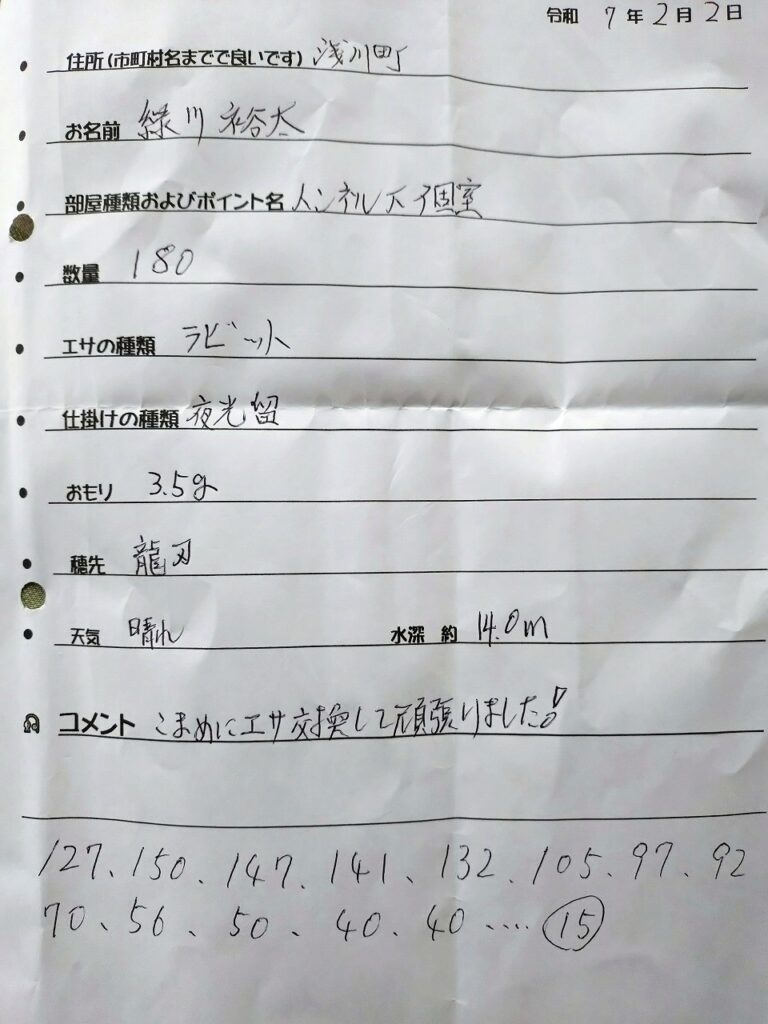 令和 7年2月2日
住所(市町村名までで良いです) 浅川町
お名前 緑川 裕太
部屋種類およびポイント名 トンネル下個室
数量 180
エサの種類 ラビット
仕掛けの種類 夜光留
おもり 3.5g
穂先 龍刃
天気 晴れ 水深 約 14.0m
コメント こまめにエサ交換して頑張りました!
127、150、147、141、132、105、97、92
70、56、50、40、40、…. ⑮